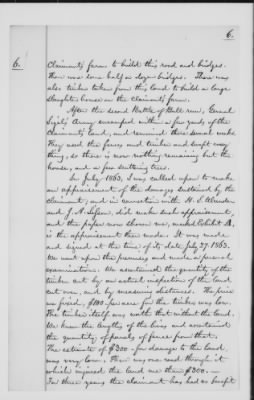 6.
6.
Claimants farm to build this road and bridges.
There was some half a dozen bridges. There was
also timber taken from this land to build a large
slaughter house on the claimants farm.
After the second Battle of Bull run, General
Sigel's Army encamped within a few yards of the
Claimants land, and remained there several weeks
They used the fences and timber and swept every
thing, so there is now nothing remaining but the
house, and a few scattering trees.
In July 1863, I was called upon to make
an appraisement of the damages sustained by the
claimant, and in connection with H. S. Wunder
and J. H. did make such appraisement,
and the paper now shown me, marked Exhibit A,
is the appraisement then made. It was made
and signed at the time of its date July 27. 1863.
We went upon the premises and made a personal
examination. We ascertained the quantity of the
timber cut by an actual inspection of the land
cut over, and by measuring distances. The price
we fixed, $100 per acre for the timber was low.
The timber itself was worth that without the land.
We knew the lengths of the lines and ascertained
the quantity of panels of fence from that.
The estimate of $300 for damage to the land,
was very low. There was one road through it
which injured the land more than $300. —
For three years the claimant has had no benefit